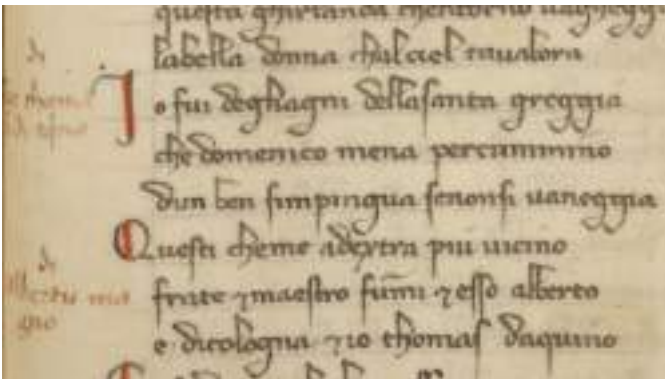 questa ghirlanda chentorno uagheggi
labella donna chalciel taualora
Io fui deghagni dellasanta greggia
che domenico mena percammino
dun ben simpingua senonsi uaneggia
Questi cheme adextra piu uicino
frate ⁊ maestro fu͞mi ⁊ esso alberto
e dicologna ⁊ io thomas daquino